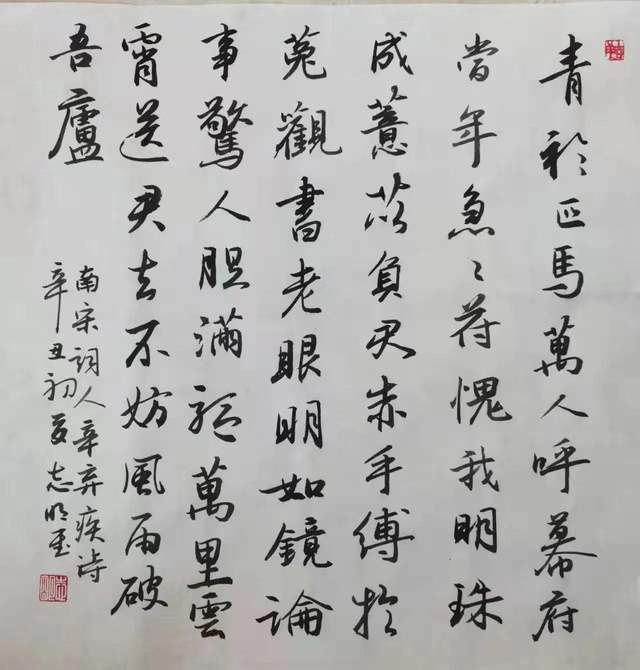 青衫匹馬萬人呼幕府
當年急々符愧我明珠
成薏苡負君赤手縛於
菟觀書老眼明如鏡論
事驚人胆滿軀萬里雲
霄送君去不妨風雨破
吾廬
南宋詞人辛弃疾詩
辛丑初夏志明書